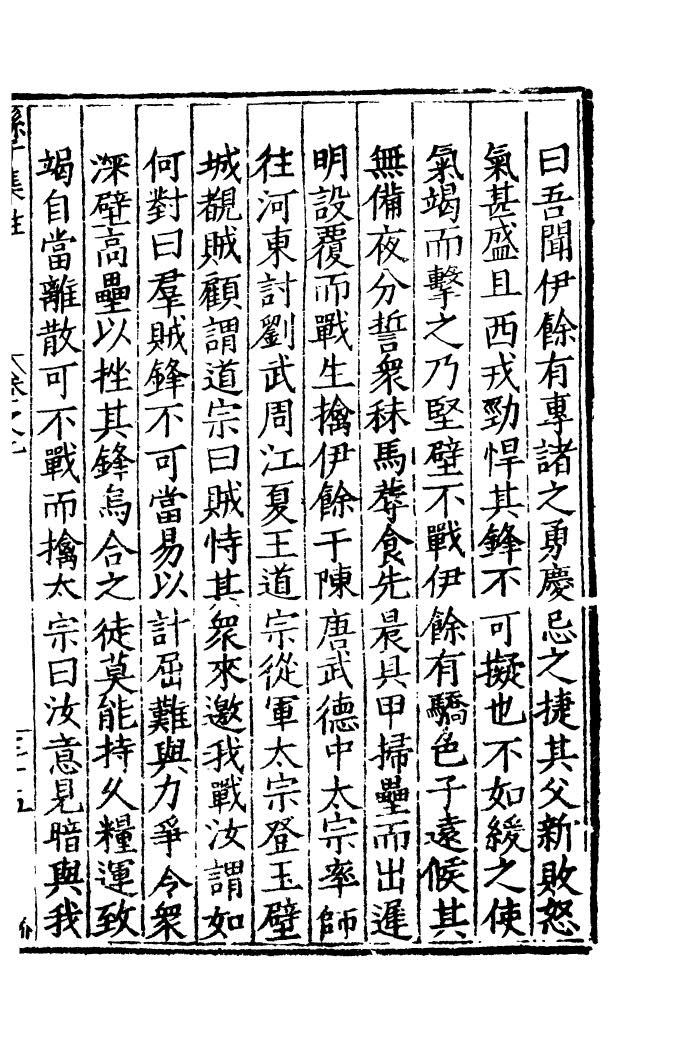 曰吾聞伊餘有專諸之勇慶忌之捷其父新敗怒
氣甚盛且西戎勁悍其鋒不可擬也不如緩之使
氣竭而擊之乃堅壁不戰伊餘有驕色子遠候其
無備夜分誓衆秣馬蓐食先晨具甲掃壘而出遲
明設覆而戰生擒伊餘于陳唐武德中太宗率師
往河東討劉武周江夏王道宗從軍太宗登玉壁
城覩賊顧謂道宗曰賊恃其衆來邀我戰汝謂如
何對曰羣賊鋒不可當易以計屈難與力爭令衆
深壁高壘以挫其鋒烏合之徒莫能持久糧運致
竭自當離散可不戰而擒太宗曰汝意見暗與我